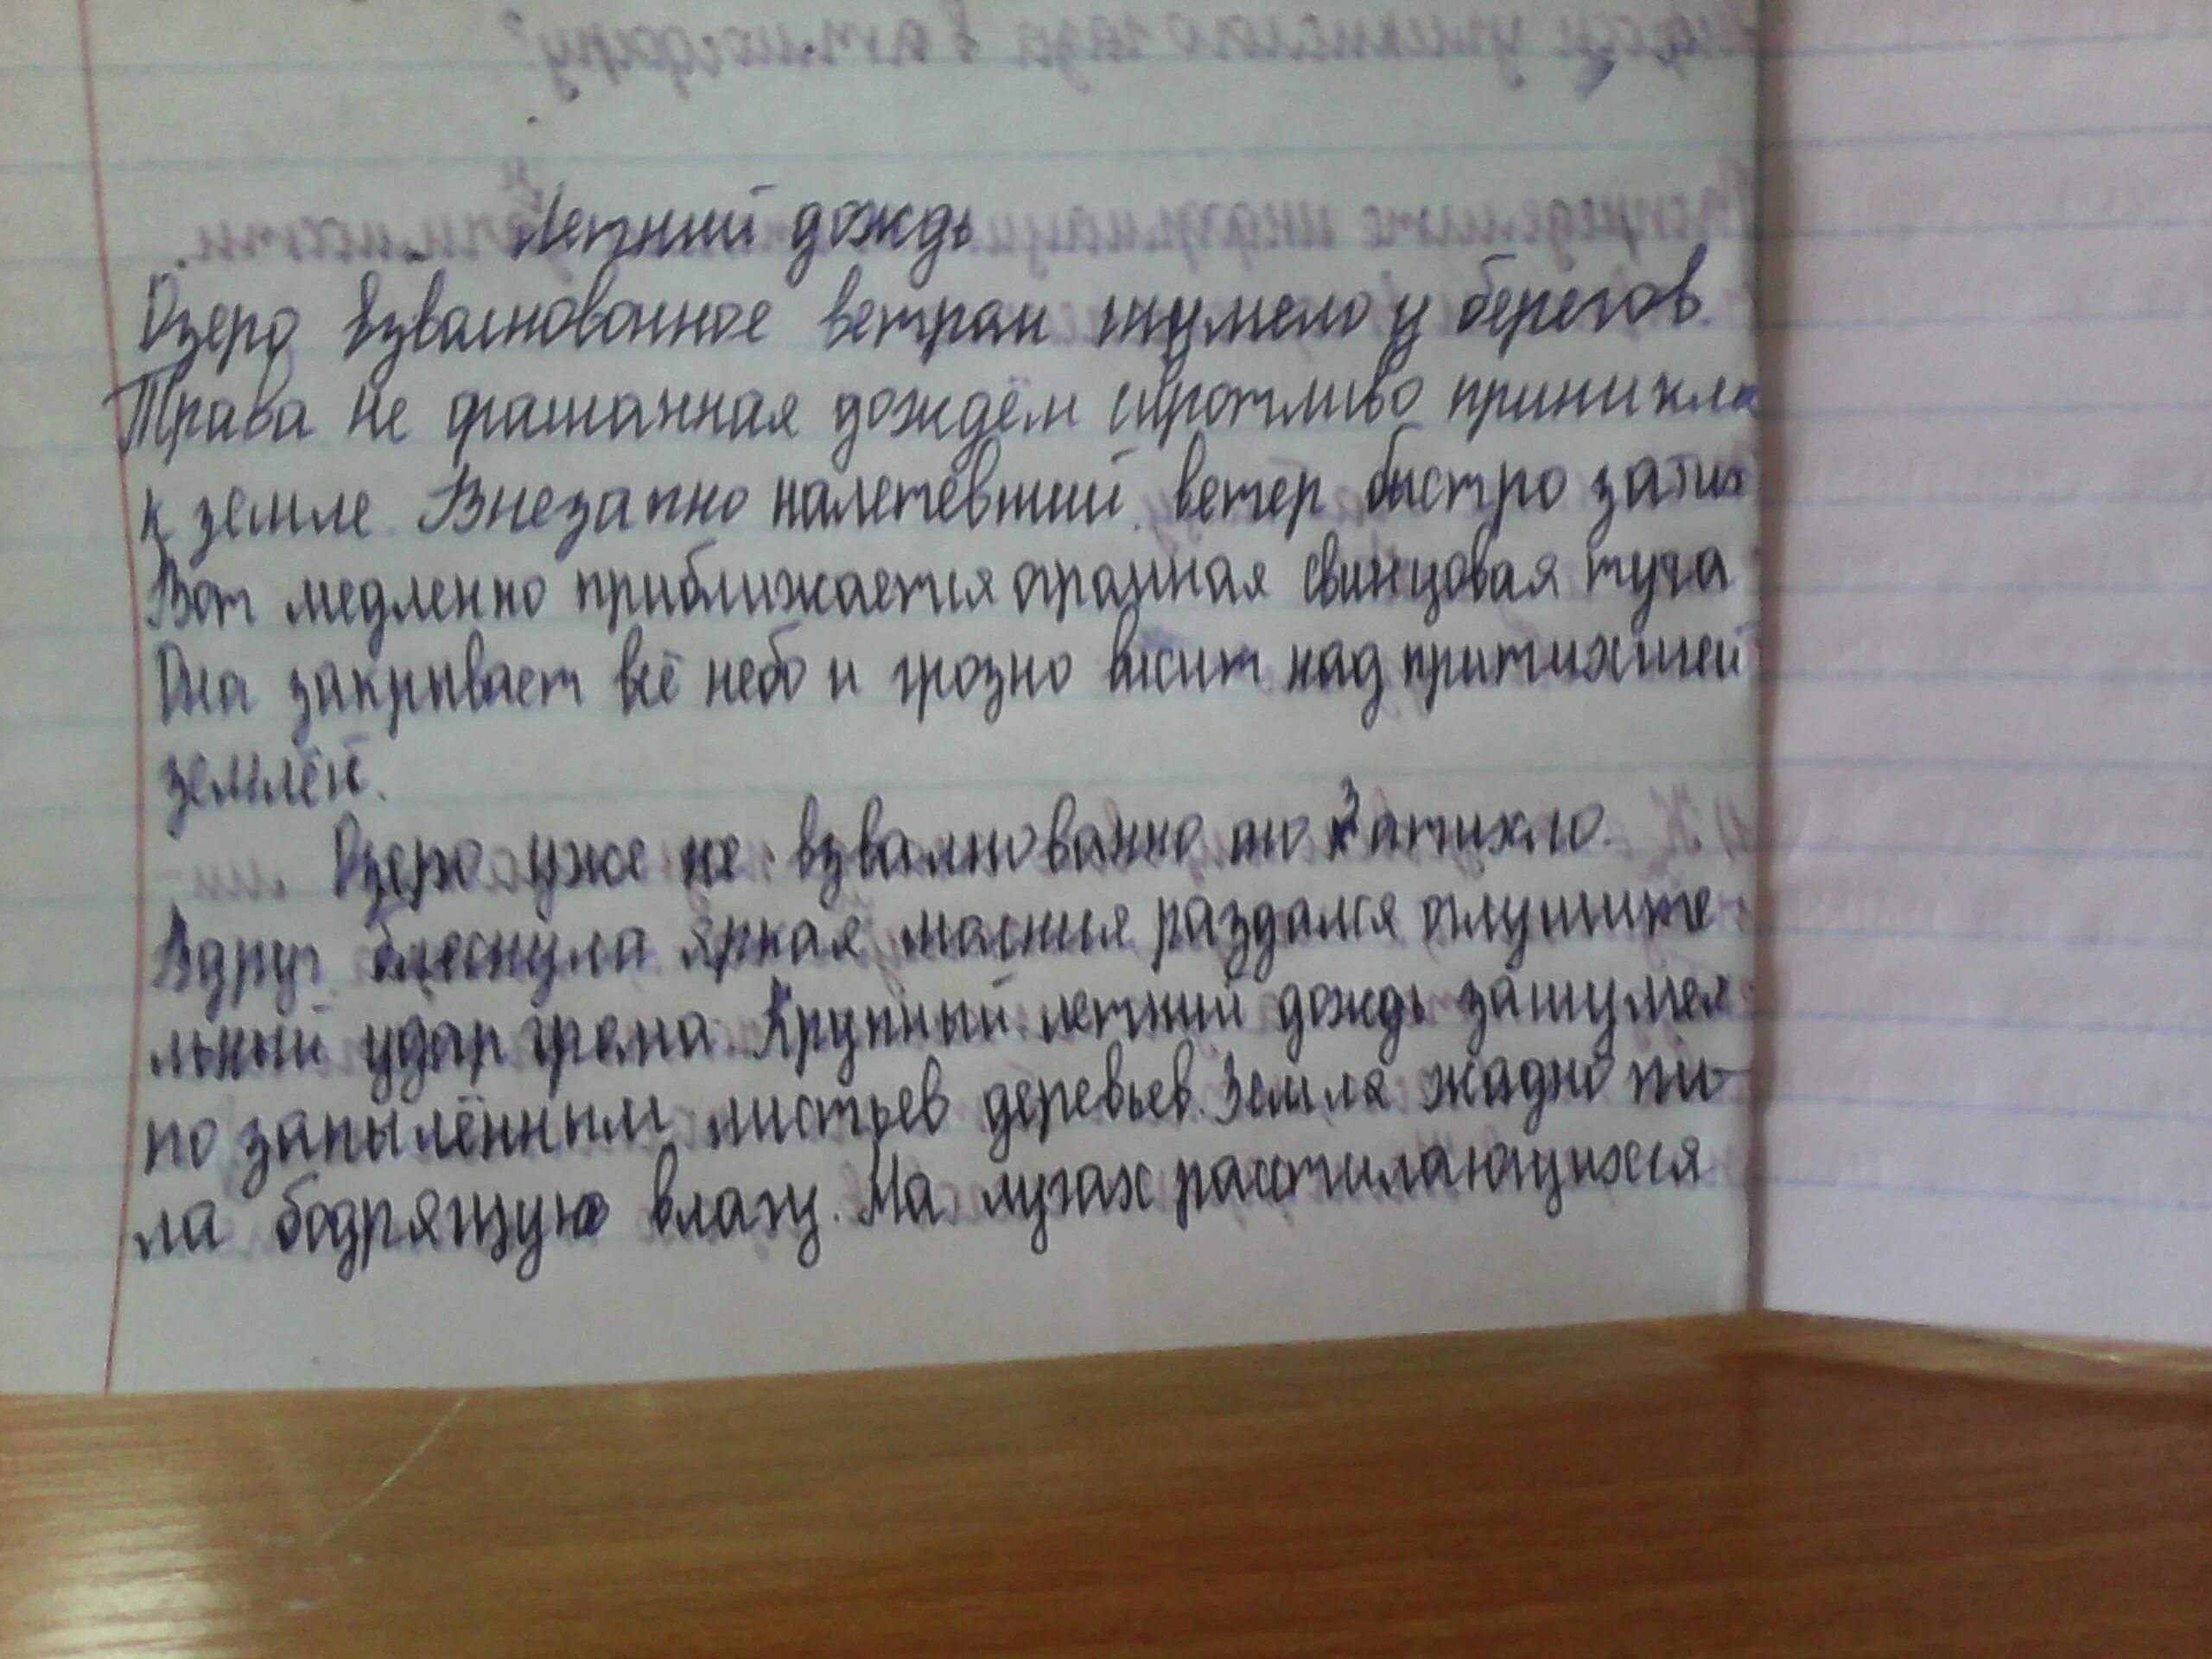 Летний дождь
Озеро взволнованное ветром шумело у берегов.
Трава не орашанная дождём сиротливо приникла
к земле. Внезапно налетевший ветер быстро затих
Вот медленно приближается огромная свинцовая туча
Она закрывает всё небо и грозно висит над притихшей
землёй.
Озеро уже не взволнованно оно затихло.
Вдруг блеснула яркая молния раздался оглушите-
льный удар грома. Крупный летний дождь зашумел
по запылённым листьев деревьев. Земля жадно пи-
ла бодрящую влагу. На лугах расстилающихся